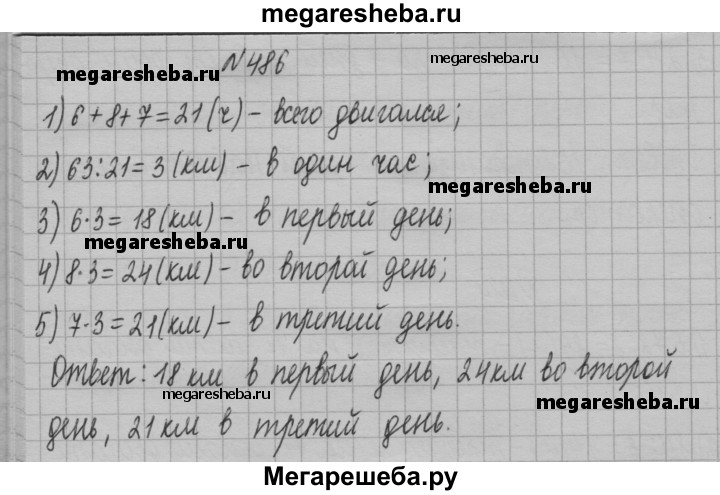 megaresheba.ru
megaresheba.ru
№486
megaresheba.ru
1) 6+8+7=21(ч) - всего двигался;
2) 63:21=3 (км) - в один час;
megaresheba.ru
3) 6·3=18(км) - в первый день;
megaresheba.ru
4) 8·3=24(км) - во второй день;
5) 7·3=21(км) - в третий день.
Ответ: 18 км в первый день, 24км во второй
megaresheba.ru
megaresheba.ru
день, 21 км в третий день.
Мегарешеба.ру